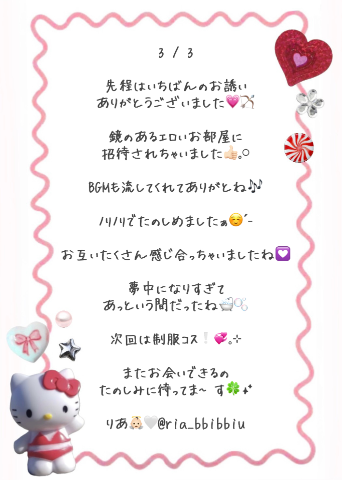 3 / 3
先程はいちばんのお誘い
ありがとうございました💗🏹
鏡のあるエロいお部屋に
招待されちゃいました👍🏻｡○
BGMも流してくれてありがとね🎶
ノリノリでたのしめましたぁ☺️´-
お互いたくさん感じ合っちゃいましたね💟
夢中になりすぎて
あっという間だったね🛁🫧
次回は制服コス❕💞⊹
またお会いできるの
たのしみに待ってま〜す🍀✨
りあ👼🏻🤍@ria_bbibbiu